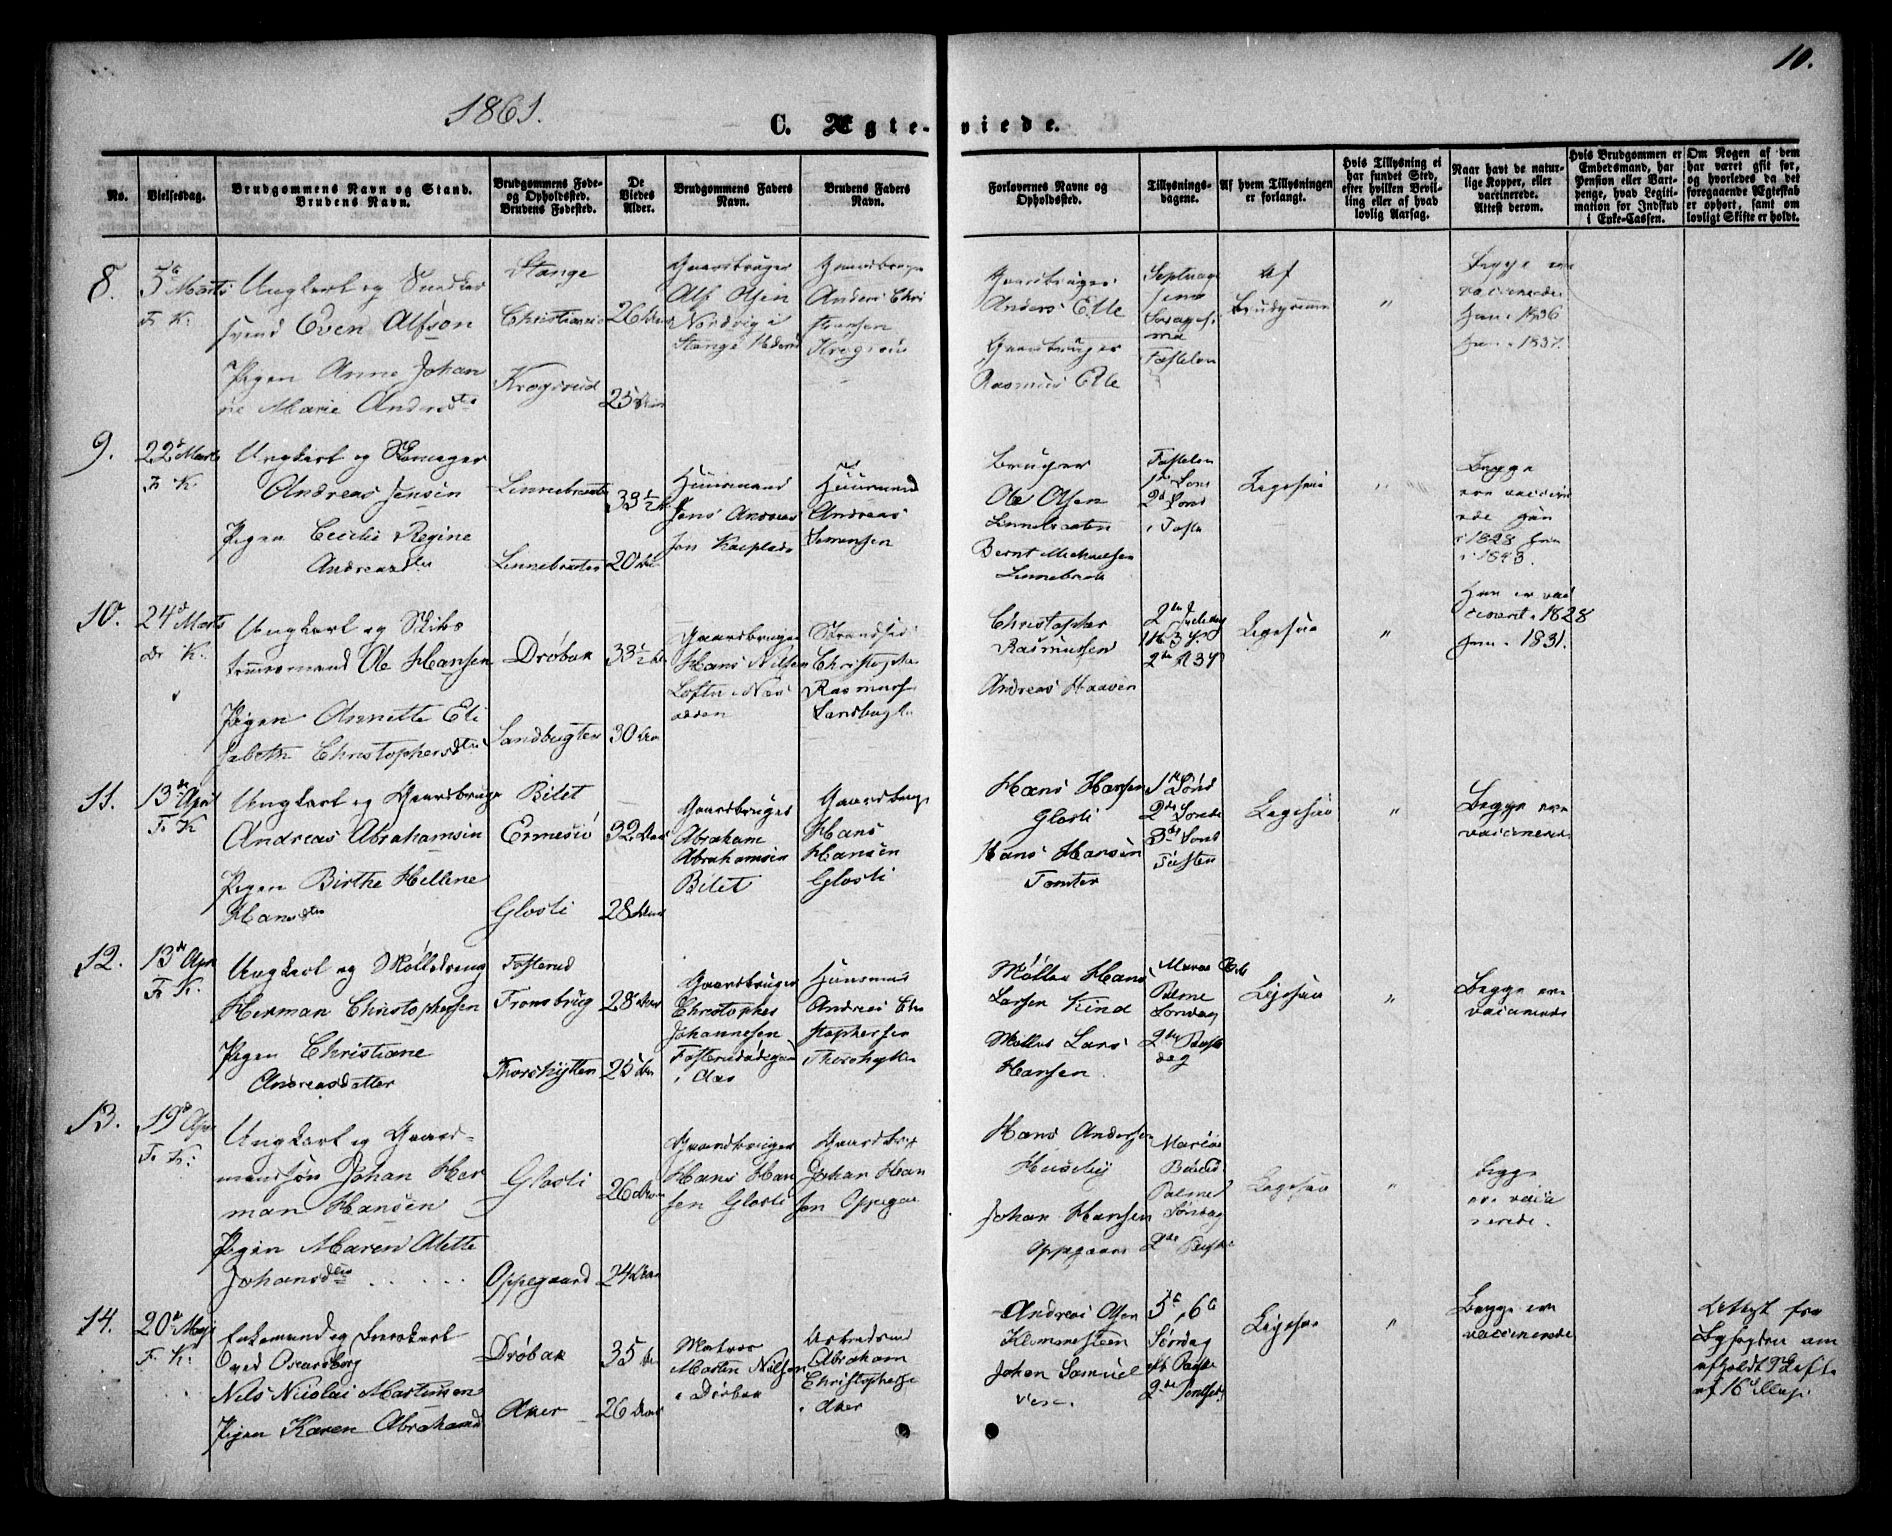 10.
1861.
C. Ægte- viede.
No.
Vielsesdag.
Brudgommens Navn og Stand.
Brudens Navn.
Brudgommens Føde-
og Opholdssted.
Brudens Fødested.
De
Viedes
Alder.
Brudgommens Faders
Navn.
Brudens Faders
Navn.
Forlovernes Navne og
Opholdssted.
Tillysnings-
dagene.
Af hvem Tillysningen
er forlangt.
Hvis Tillysning ei
har fundet Sted,
efter hvilken Bevil-
ling eller af hvad
lovlig Aarsag.
Naar havt de natur-
lige Kopper, eller
vaccinerede.
Attest derom.
Hvis Brudgommen er
Embedsmand, har
Pension eller Vart-
penge, hvad Legiti-
mation for Indskud
i Enke-Cassen.
Om Nogen af dem
har været gift før,
og hvorledes da det
foregaaende Ægteskab
er ophørt, samt om
lovligt Skifte er holdt.
8.
5te Marts
Fr. K.
Ungkarl og
svend Even Alfson
Pigen Anne Johan
ne Marie Andersdtr
Stange
Christiania
Krogsrud
26
25
Gaardbruger
Alf Olsen
Nordvig i
Stange
Gaardbruger
Anders Chri
stiansen
Krogsrud
Gaardbruger
Anders Elle
Gaardbruger
Rasmus Elle
Septuage
sima
Sexagesi
ma
Fastelon
Af
Brudgommen
"
Begge ere
vaccinerede
han 1836
hun 1837.
9.
22de Marts
Fr. K.
Ungkarl og Skomager
Andreas Jensen
Pigen Cecilie Regine
Andreasdtr
Linnebraaten
Linnebraaten
33½
20
Huusmand
Jens Andreas
sen
Huusmand
Andreas
Sørensen
Bruger
Ole Olsen
Linnebraaten
Bernt Michaelsen
Linnebraat
Fastelon
1ste Sønd
2d Sønd
i Faste
Ligesaa
"
Begge
ere vaccine
rede han
i 1828 hun
i 1843.
10.
24de Marts
Dr. K.
Ungkarl og Skibs
tømmermand Ole Hansen
Pigen Annette Eli
sabeth Christophersdtr
Drøbak
Sandbugten
33½
30
Gaardbruger
Hans Nilsen
Loftu i Næs
odden
Strandsid
Christopher
Rasmussen
Sandbugt
Christopher
Rasmussen
Andreas Haaven
2den Juledag
Ligesaa
"
Han er vac
cineret 1828
hun 1831.
11.
13de April
Fr. K
Ungkarl og Gaardbruger
Andreas Abrahamsen
Pigen Birthe Helene
Hansdtr
Bilet
Ermesjø
Glosli
32
28
Gaardbruger
Abraham
Abrahamsen
Bilet
Gaardbruger
Hans
Hansen
Glosli
Hans Hansen
Glosli
Hans Hansen
Tomter
1ste Sønd
2den Sønd
3die Sønd
Fasten
Ligesaa
"
Begge ere
vaccinerede
12.
13de Apr
Fr. K.
Ungkarl og Mølledreng
Herman Christophersen
Pigen Christiane
Andreasdatter
Fosterud
Fronsbrug
Thorshytten
28
25
Gaardbruger
Christopher
Johannesen
i Aas
Huusmand
Andreas Chri
stophersen
Thorshytten
Møller Hans
Larsen Kind
Møller Lars
Hansen
Palme
Søndag
2den Paaske
dag
Ligesaa
"
Begge ere
vaccinerede
13.
19de Apr
Fr. K.
Ungkarl og Gaard-
mandssøn Johan Her
man Hansen
Pigen Maren Olette
Johansdtr . . . . .
Glosli
Oppegaard
26
24
Gaardbruger
Hans Han
sen Glosli
Gaardbrug
Johan Han
sen Oppegaa
Hans Andersen
Huseby
Johan Hansen
Oppegaard
Mariæ
Palme
Søndag
2den Paaske
Ligesaa
"
Begge
ere vacci
nerede.
14.
20de Maj
Fr. K.
Enkemand og
ved Oscarsborg
Nils Nicolai Martinsen
Pigen Karen Abrahamsd
Drøbak
Aker
35
26
Matros
Martin Nilsen
i Drøbak
Abraham
Christophers
i Aker
Andreas Olsen
Klommesteen
Johan Samuel
sen.
5te, 6te
Søndag
eft. Paaske
2den Pintsed.
Ligesaa
"
Begge ere
vaccinerede
Attest fra
Byfogden om
afholdt Skifte
af 16de Maj.